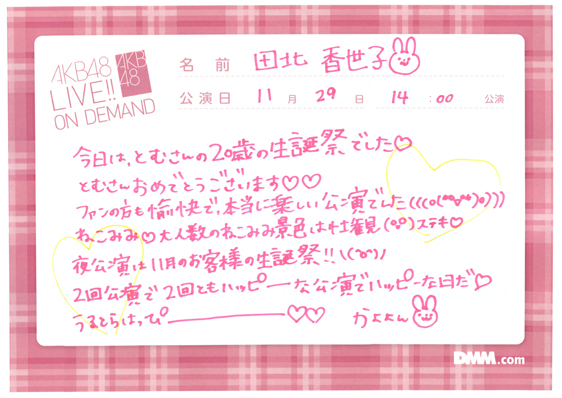 AKB48
LIVE!!
ON DEMAND
AKB
48
名前 田北 香世子
公演日 11月29日 14:00 公演
今日は、ともさんの20歳の生誕祭、でした♡
ともさんおめでとうございます♡♡
ファンの方も愉快で、本当に楽しい公演でした(((o(*°▽°*)o)))
ねこみみ♡大人数のねこみみ景色は壮観(°°)ステキ♡
夜公演は11月のお客様の生誕祭!!\(^o^)/
2回公演で2回ともハッピーな公演でハッピーな日だ♡
うるとらはっぴ――――♡♡ かよよん
DMM.com